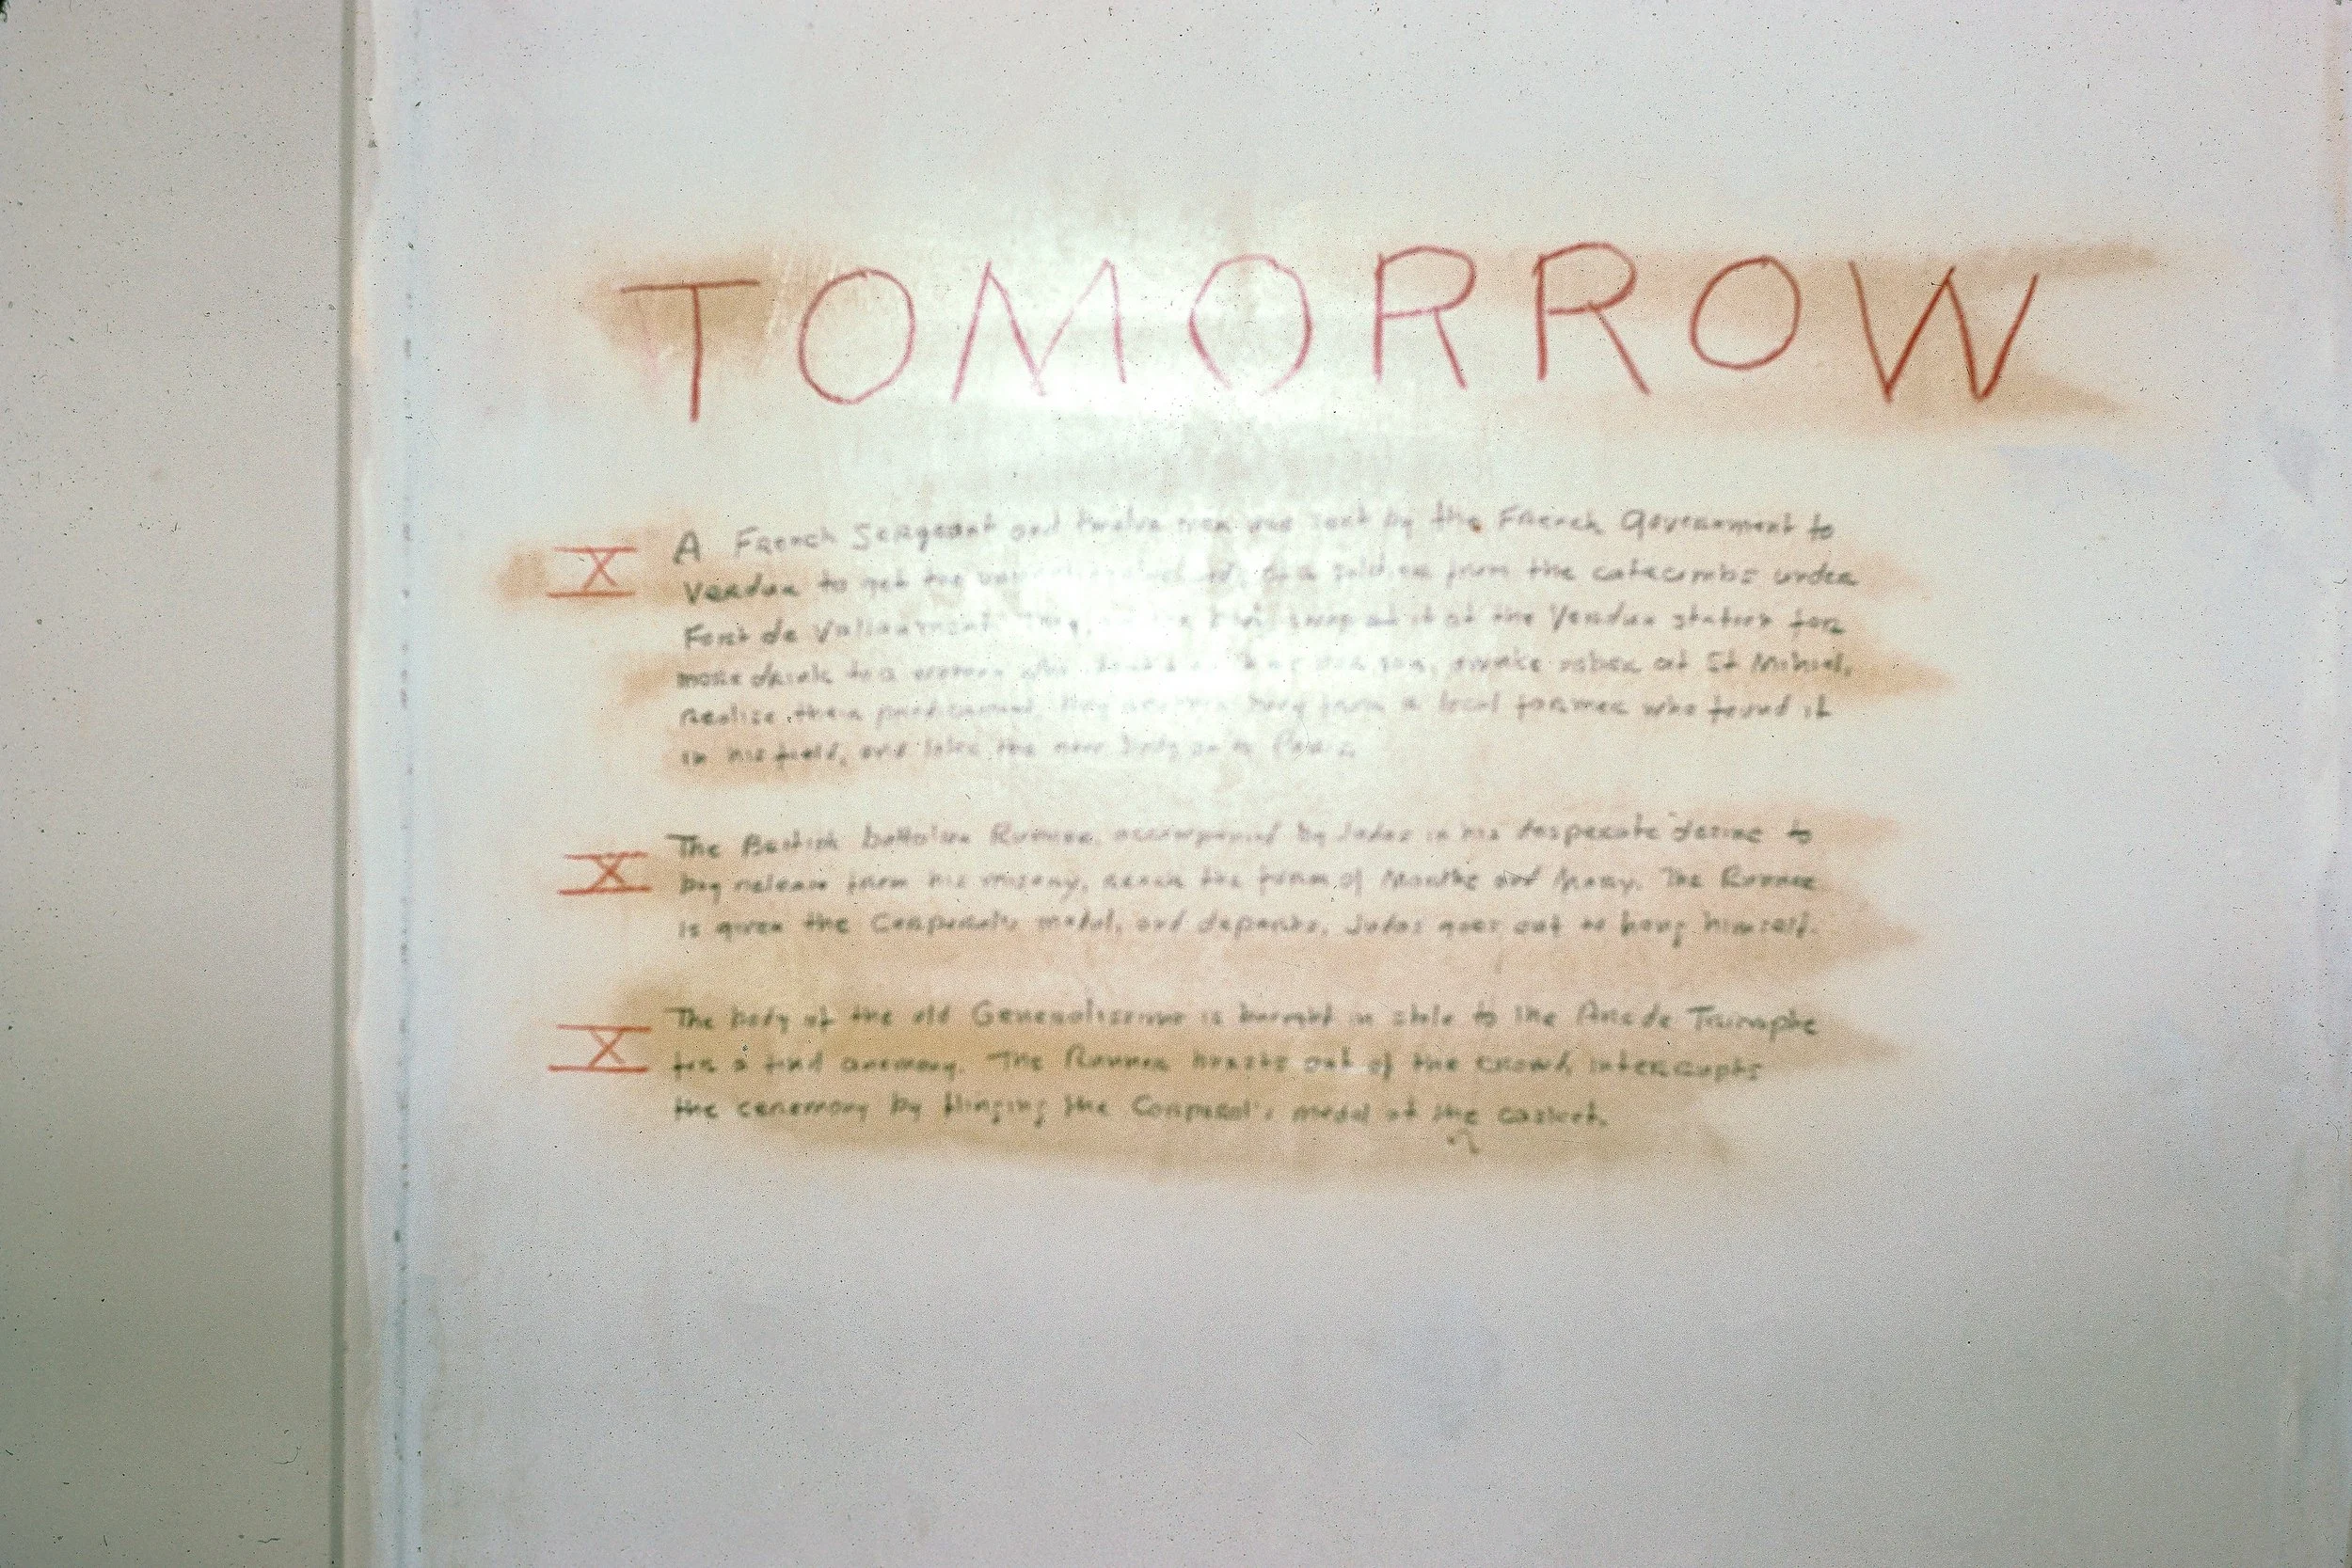 TOMORROW
X A French Sergeant and twelve men are sent by the French Government to
Verdun to get the of a soldier from the catacombs under
Fort de Vallaumont. They, swap it at the Verdun station for
more drink to a woman who her son, awake sober at St Mihiel,
realize their predicament, they another body from a local farmer who found it
in his field, and take the new body on to Paris.
X The British battalion Runner, accompanied by Judas in his desperate desire to
buy release from his misery, reach the farm of Marthe and Mary. The Runner
is given the Corporal's medal, and departs, Judas goes out to hang himself.
X The body of the old Generalissimo is brought in state to the Arc de Triumphe
for a final ceremony. The Runner bursts out of the crowd, interrupts
the ceremony by flinging the Corporal's medal at the casket.